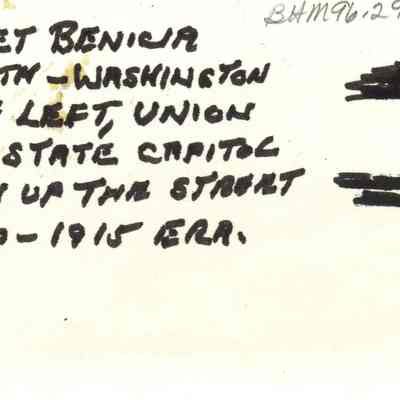 BHM96.29
ET BENICIA
TH - WASHINGTON
LEFT, UNION
STATE CAPITOL
UP THE STREET
- 1915 ERA.